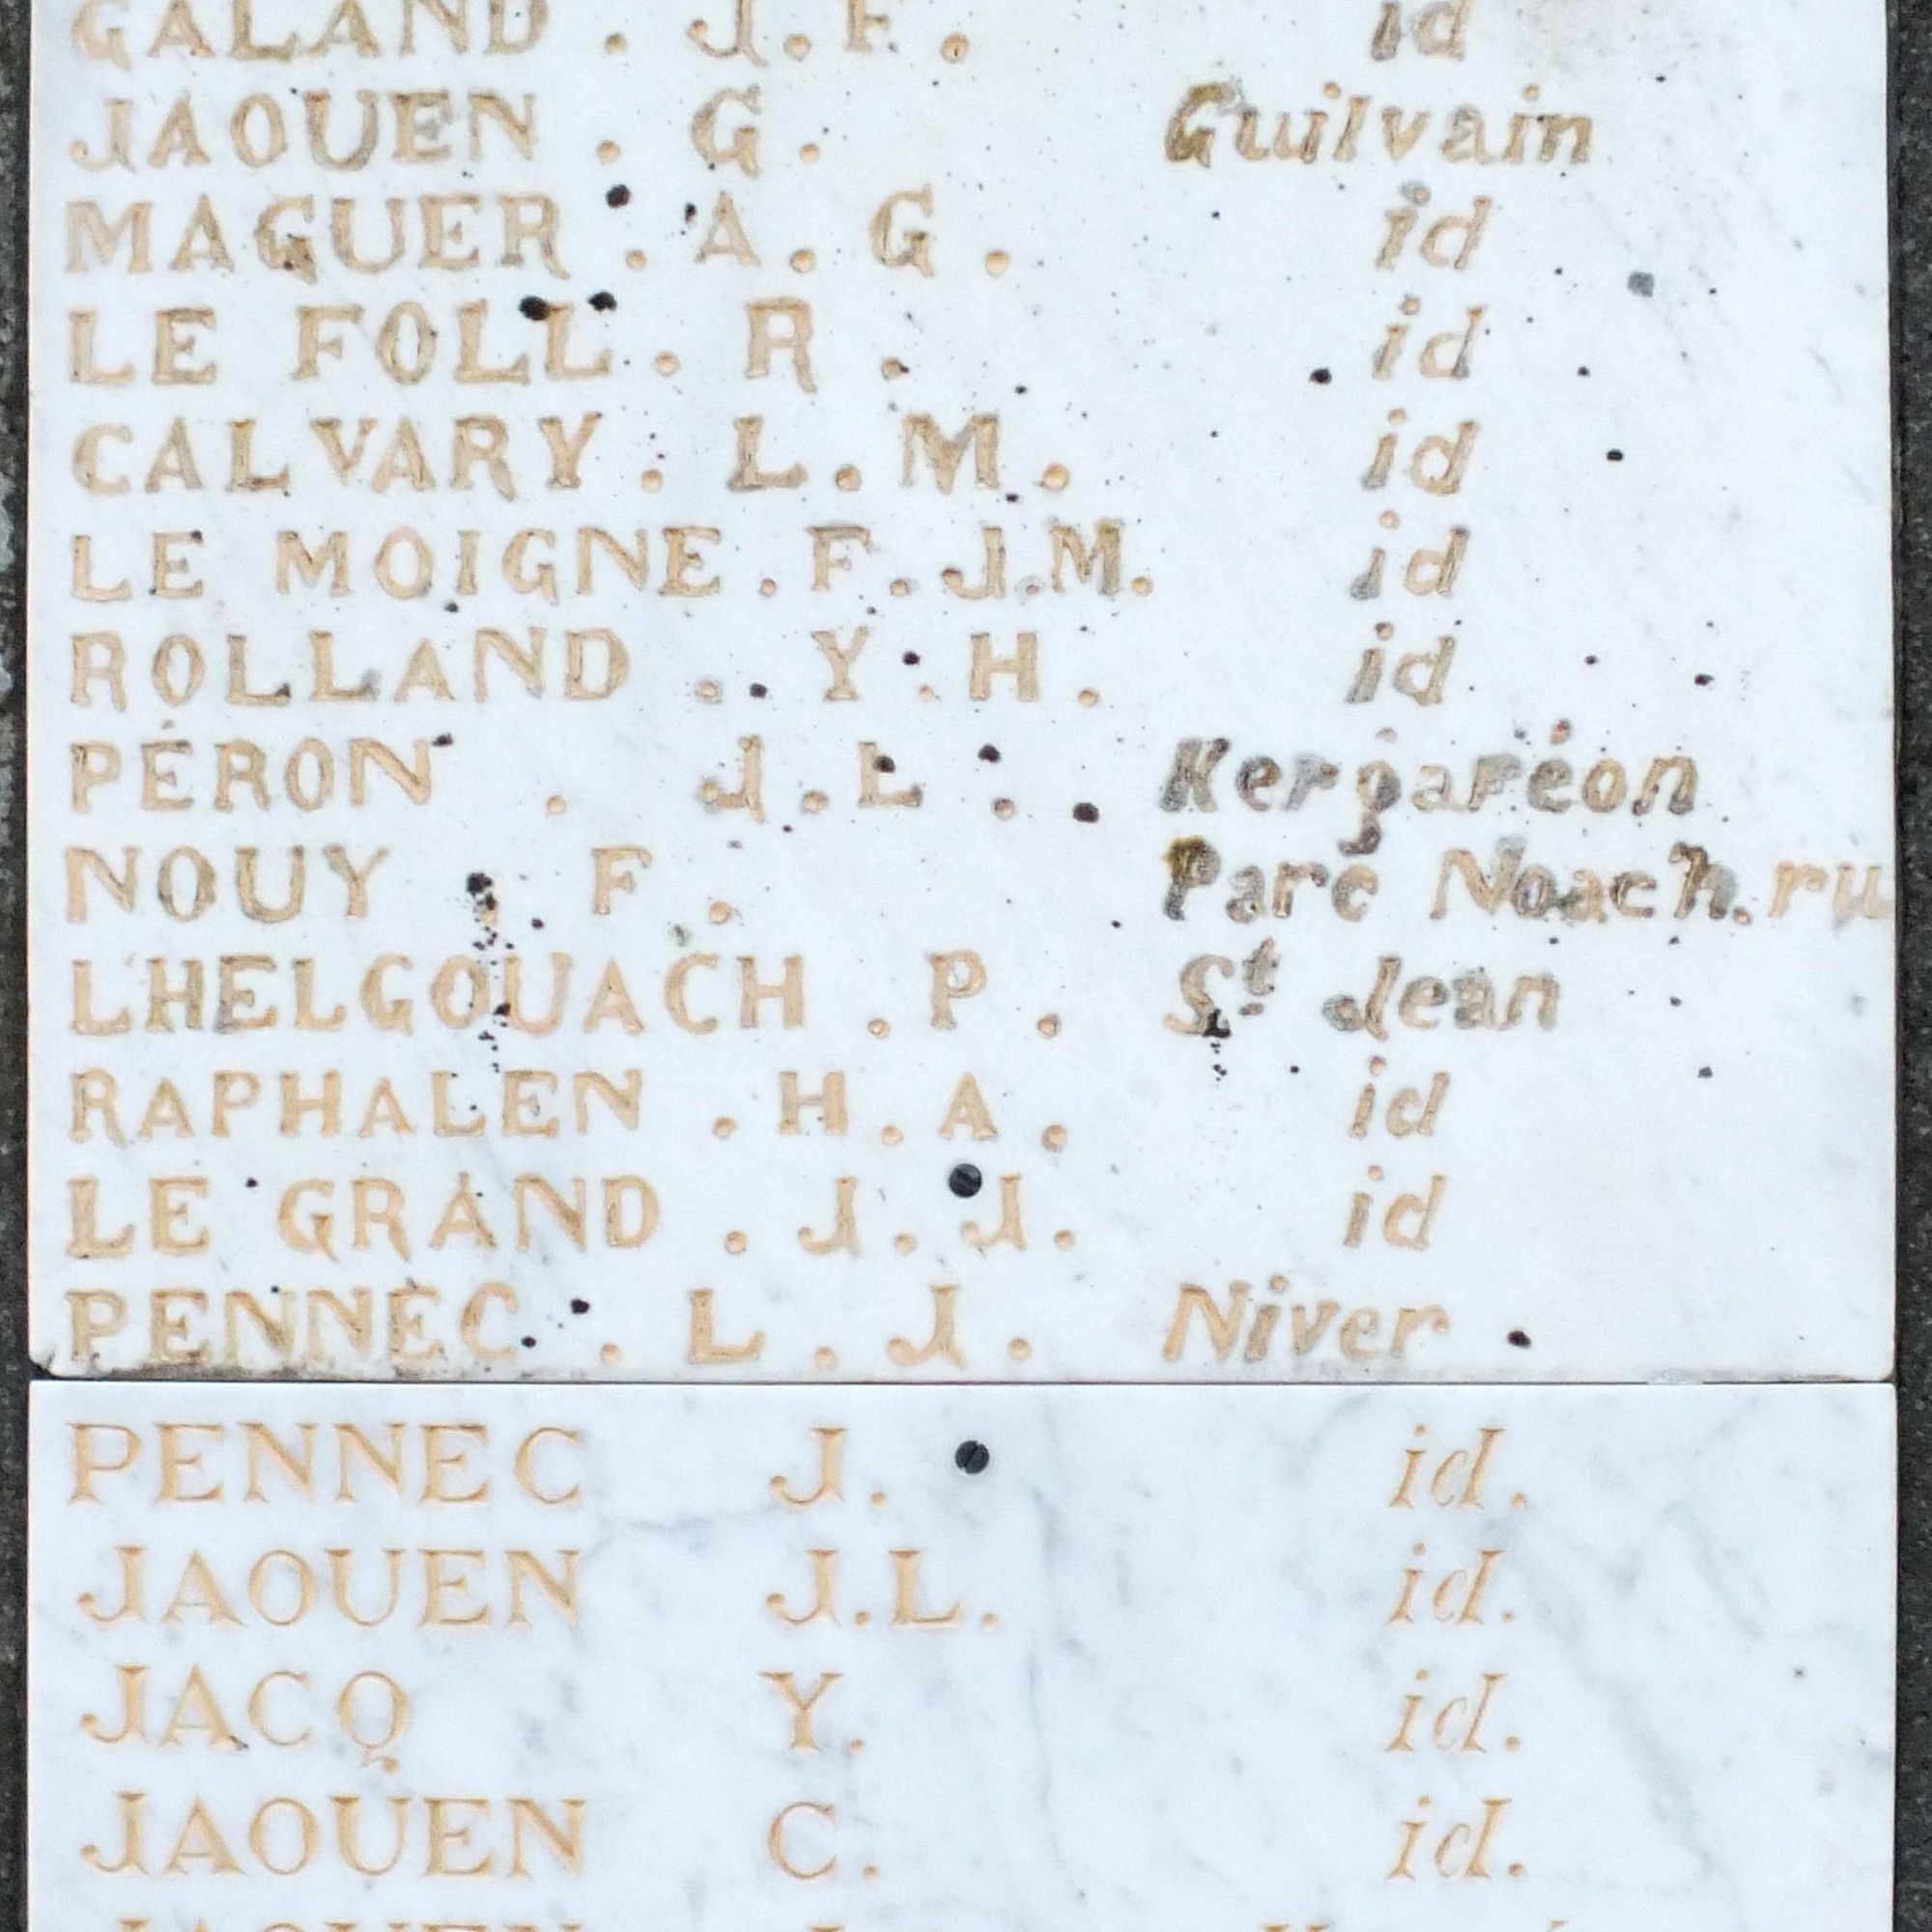 GALAND . J. F. id
JAOUEN . G. Guilvain
MAGUER . A. G. id
LE FOLL . R. id
CALVARY . L. M. id
LE MOIGNE . F. J. M. id
ROLLAND . Y. H. id
PÉRON . J. L. Kergaréon
NOUY . F. Parc Noac'h.ru
LHELGOUACH . P. St Jean
RAPHALEN . H. A. id
LE GRAND . J. J. id
PENNEC . L. J. Niver
PENNEC J. id.
JAOUEN J.L. id.
JACQ Y. id.
JAOUEN C. id.